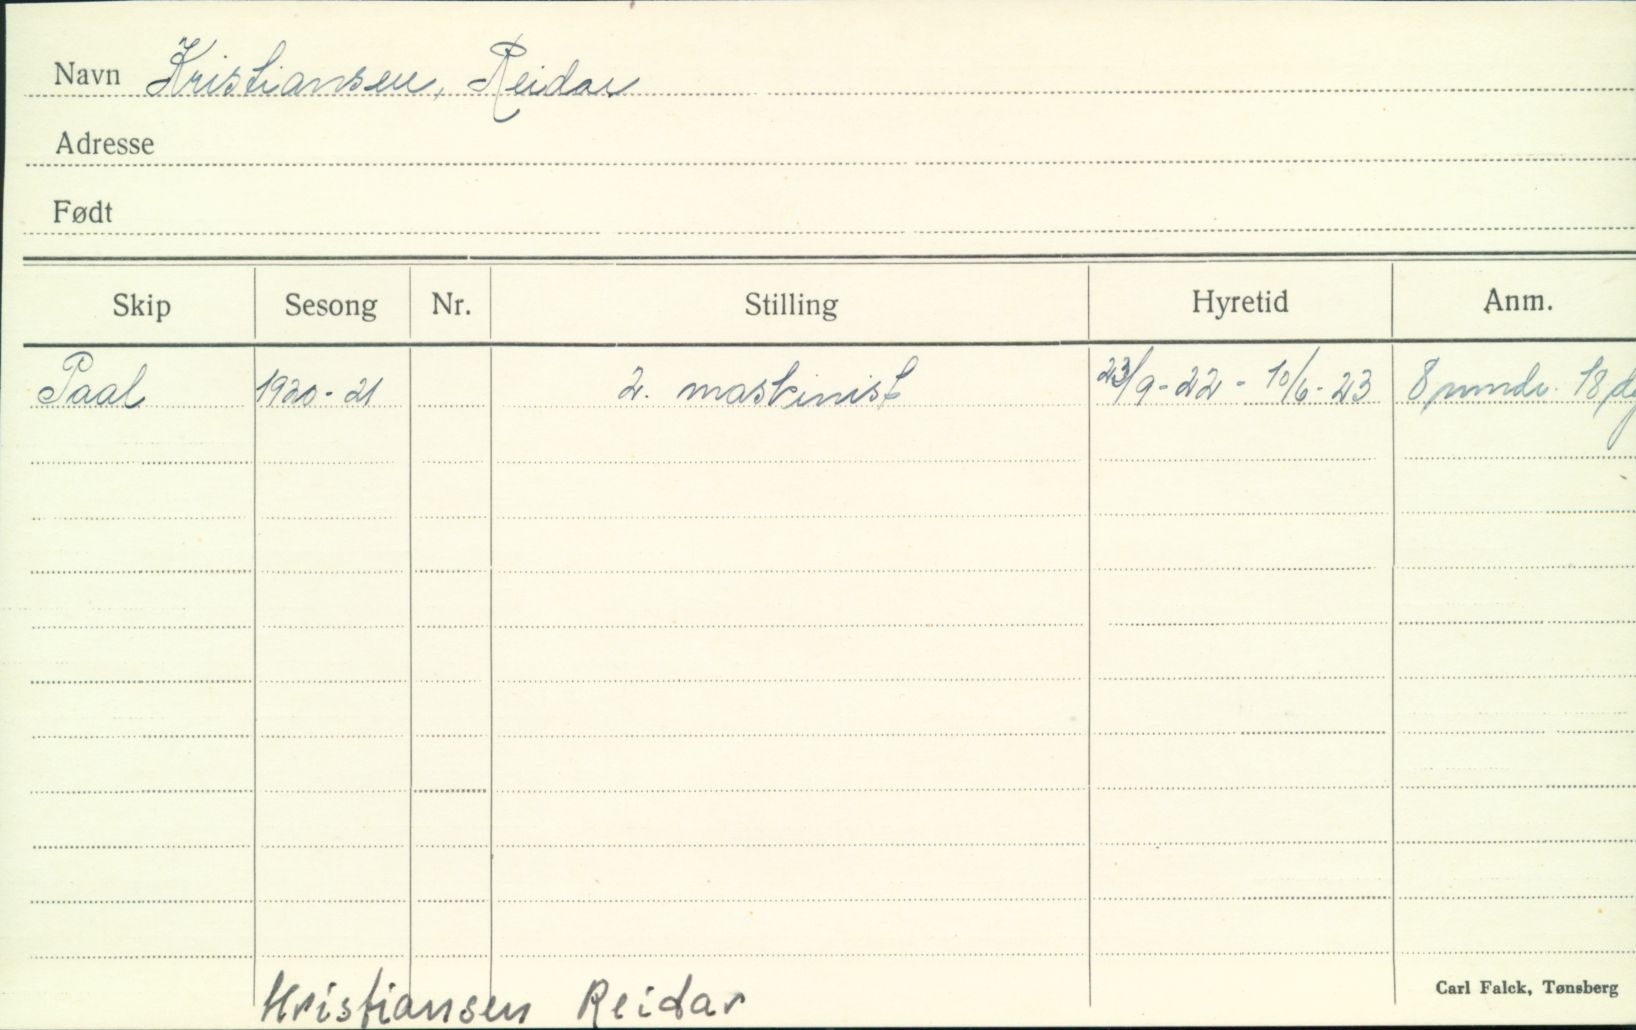 Navn Kristiansen, Reidar
Adresse
Født
Skip Sesong Nr. Stilling Hyretid Anm.
Paal 1920-21 2. maskinist 23/9-22 - 10/6-23 8 mndr. 18 dg
Kristiansen Reidar
Carl Falck, Tønsberg